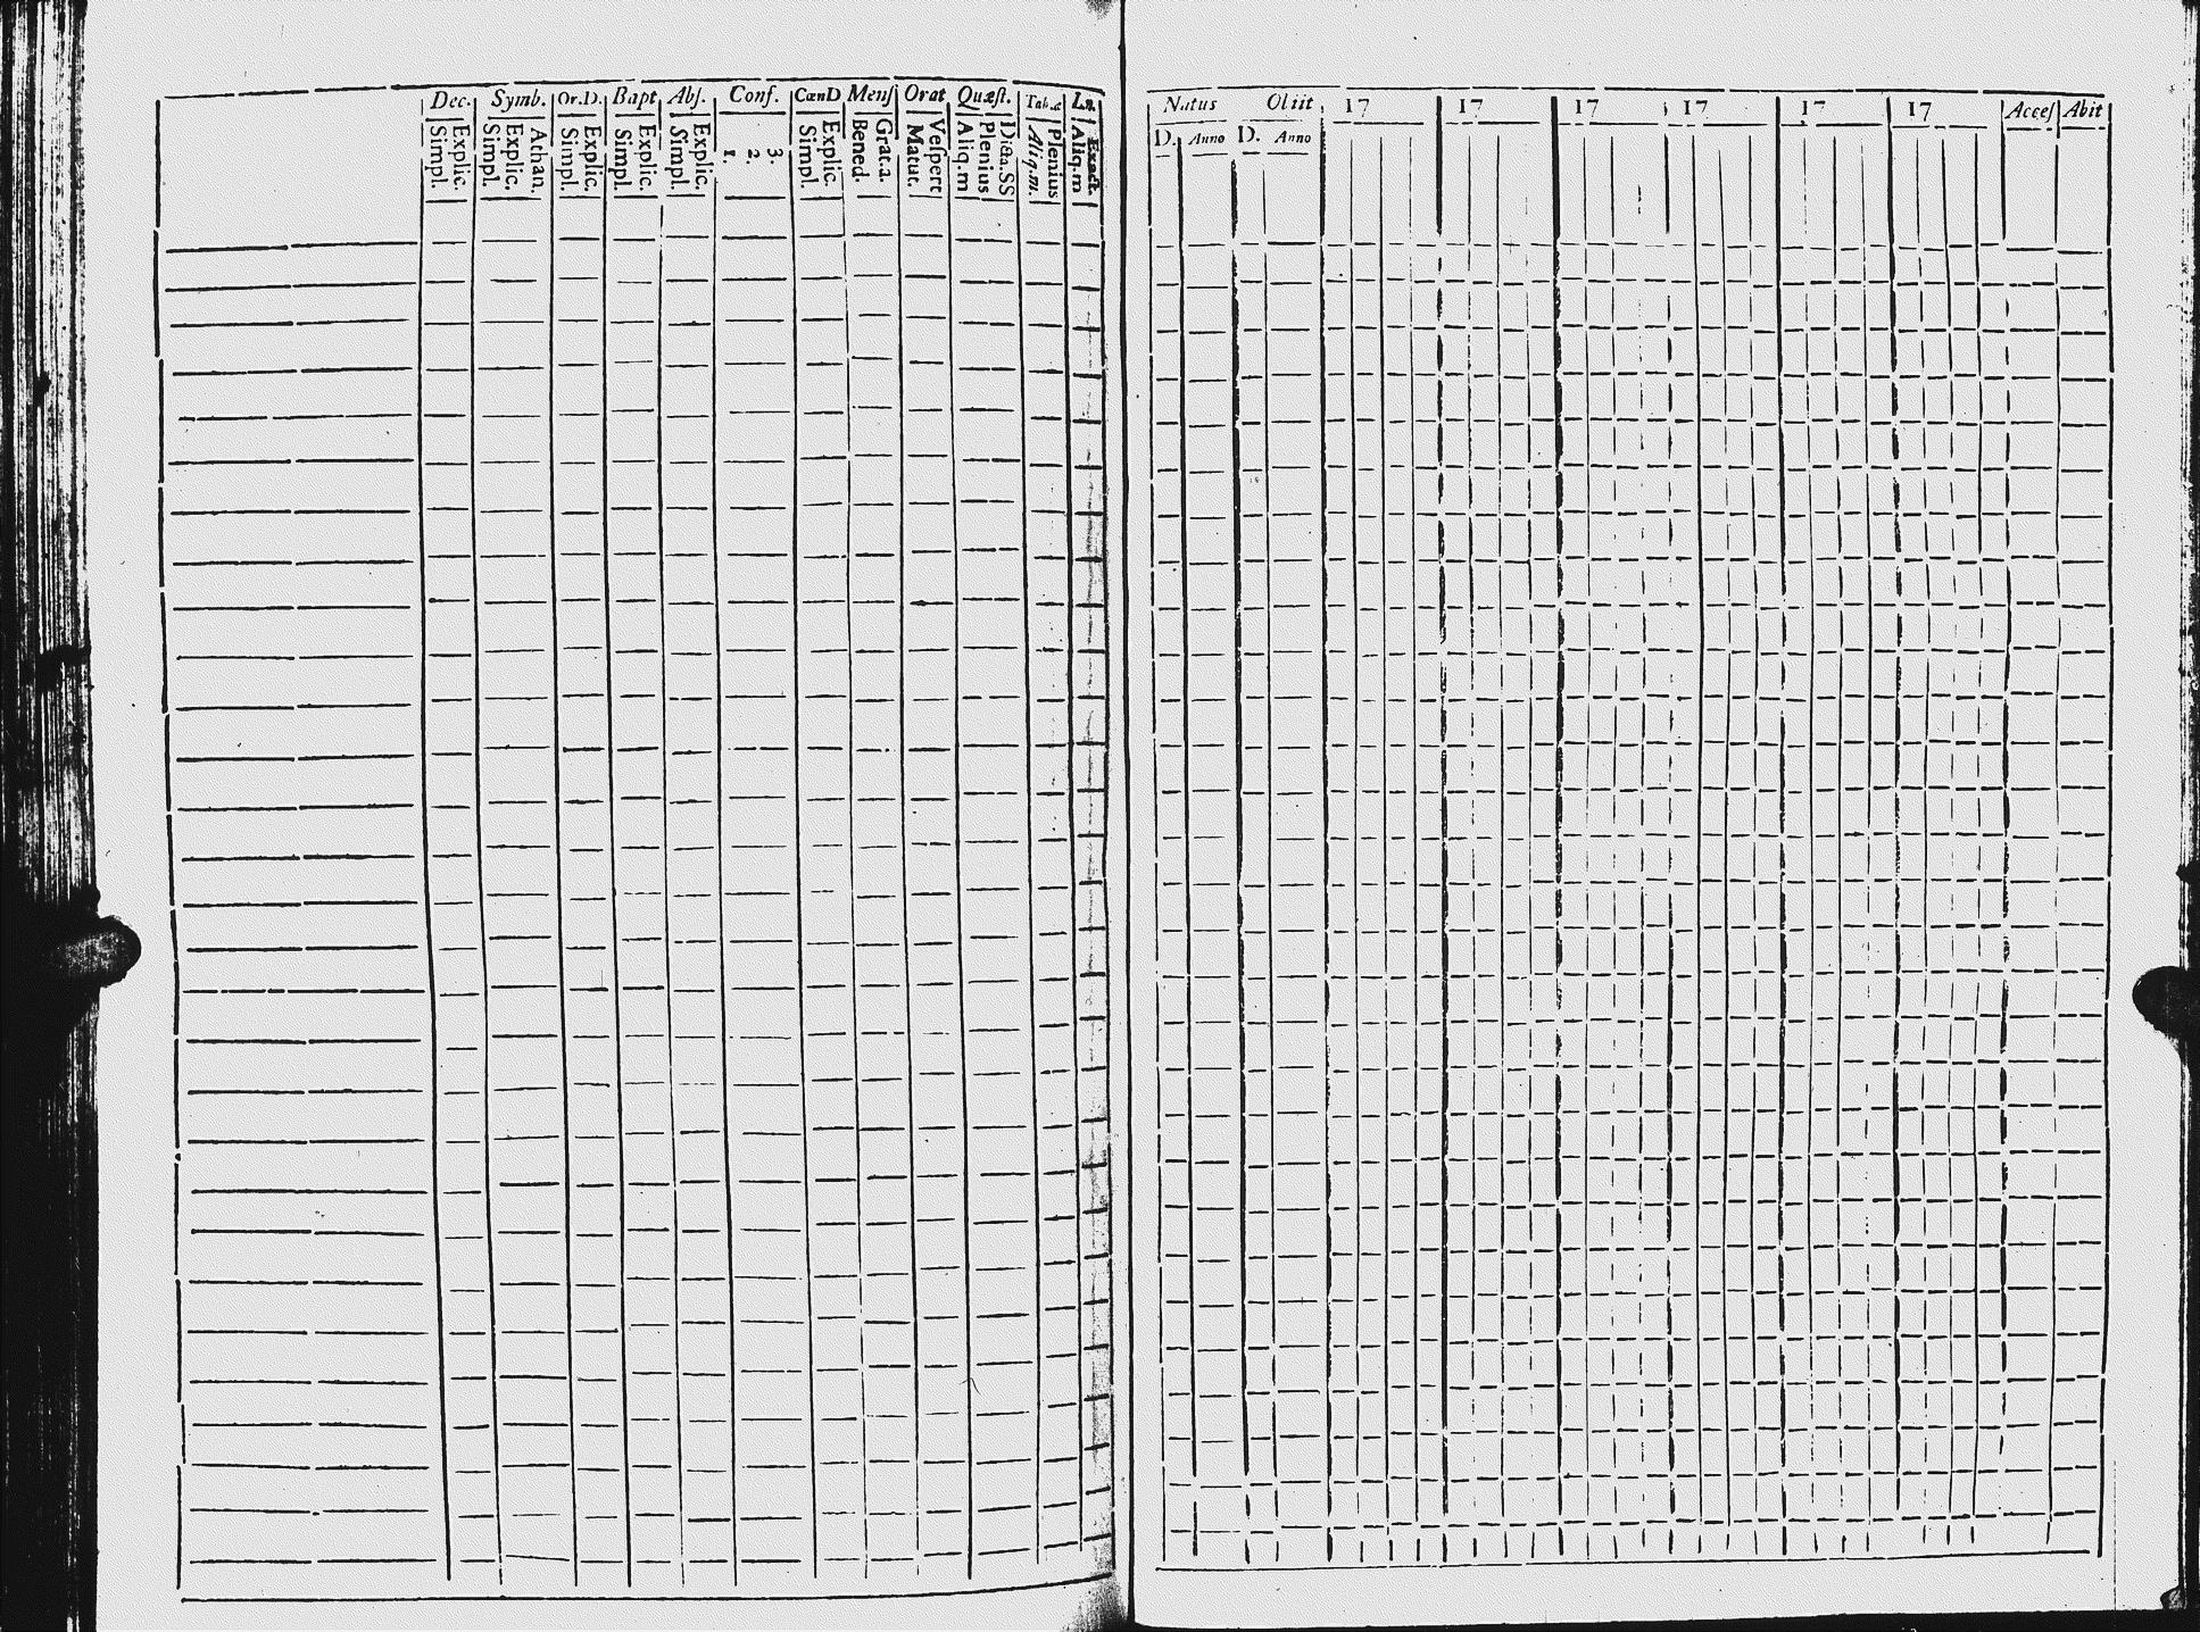 Dec. Symb. Or.D. Bapt Abſ. Conf. CœnD Menſ Orat Quæſt. Tab.æ
Explic. Simpl.
Athan. Explic. Simpl.
Explic. Simpl.
Explic. Simpl.
Explic. Simpl.
3. 2. 1.
Explic. Simpl.
Grat.a. Bened.
Veſpert Matut.
Dicta.SS Plenius Aliq.m
Plenius Aliq.m.
Exact. Aliq.m
Natus Obiit 17 17 17 17 17 17 Acceſ Abit
D. Anno D. Anno